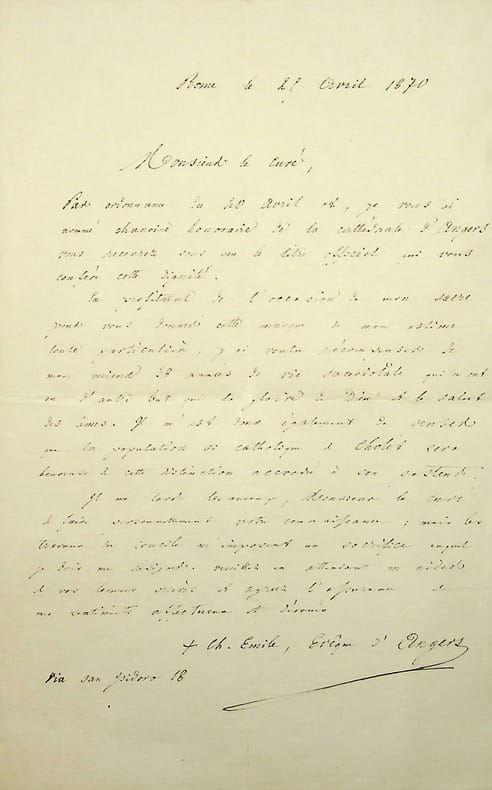 Rome le 25 Avril 1870
Monsieur le Curé,
Par ordonnance du 20 Avril ct, je vous ai
nommé chanoine honoraire de la cathédrale d'Angers
vous recevrez sous peu le titre officiel qui vous
confère cette dignité.
En profitant de l'occasion de mon sacre
pour vous donner cette marque de mon estime
toute particulière, j'ai voulu récompenser de
mon mieux années de vie sacerdotale qui n'ont
eu d'autre but que la gloire de Dieu et le salut
des âmes. Il m'est doux également de penser
que la population si catholique de Cholet sera
heureuse de cette distinction accordée à son pasteur.
Il me tarde beaucoup, Monsieur le curé
de faire personnellement votre connaissance ; mais les
travaux du concile m'imposent un sacrifice auquel
je dois me résigner. Veuillez en attendant m'aider
de vos bonnes prières, et agréez l'assurance de
mes sentiments affectueux et dévoués
+ Ch. Emile, Evêque d'Angers
Via san Isidoro 18